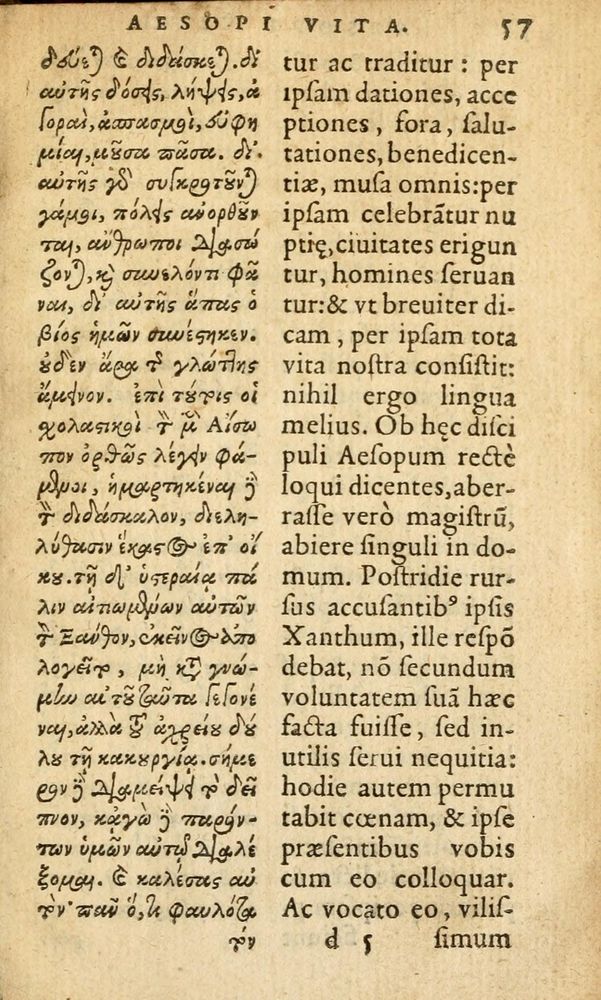 AESOPI VITA. 57
δεύε) ϗ διδάσκε). δἰ
αὐτῆς δόσεις, λήψεις, ἀ
γοραὶ, ἀσπασμοὶ, εὐφη
μίαι, μοῦσα πᾶσα. δἰ.
αὐτῆς γδ συγκροτοῦν)
γάμοι, πόλεις ἀνορθοῦν
ται, ἄνθρωποι διασώ
ζον), κỳ συνελόντι φᾶ
ναι, δἰ αὐτῆς ἅπας ὁ
βίος ἡμῶν συνέστηκεν.
οὐδὲν ἄρα τ͂ γλώττης
ἄμεινον. ἐπὶ τούτοις οἱ
χολαστικοὶ τ̀ μ̀ Αἴσω
πον ὀρθῶς λέγειν φά-
μενοι, ἡμαρτηκέναι ὃ
τ̀ διδάσκαλον, διελη-
λύθασιν ἕκαστος ἐπ' οἴ
κου. τῇ δ' ὑστεραίᾳ πά
λιν αἰτιωμένων αὐτῶν
τ̀ Ξαύθον, ἐκεῖνος ἀπο
λογεῖτο, μὴ κτ̀ γνώ-
μίω αὐτοῦ ταῦτα γεγονέ
ναι, ἀλλὰ τοῦ ἀχρείου δού
λου τῇ κακουργίᾳ. σήμε
ρον ὃ διαμείψει τὸ δεῖ
πνον, κἀγὼ ὃ παρόν-
των ὑμῶν αὐτῷ διαλέ
ξομαι. ϗ καλέσας αὐ
τὸν· πᾶν ὅ, τι φαυλότα
τον
tur ac traditur : per
ipſam dationes, acce
ptiones, fora, ſalu-
tationes, benedicen-
tiæ, muſa omnis:per
ipſam celebrãtur nu
ptię, ciuitates erigun
tur, homines ſeruan
tur:& vt breuiter di-
cam, per ipſam tota
vita noſtra conſiſtit:
nihil ergo lingua
melius. Ob hęc diſci
puli Aeſopum rectè
loqui dicentes, aber-
raſſe verò magiſtrũ,
abiere ſinguli in do-
mum. Poſtridie rur-
ſus accuſantibꝰ ipſis
Xanthum, ille reſpõ
debat, nõ ſecundum
voluntatem ſuã hæc
facta fuiſſe, ſed in-
utilis ſerui nequitia:
hodie autem permu
tabit cœnam, & ipſe
præſentibus vobis
cum eo colloquar.
Ac vocato eo, viliſ-
d 5 ſimum